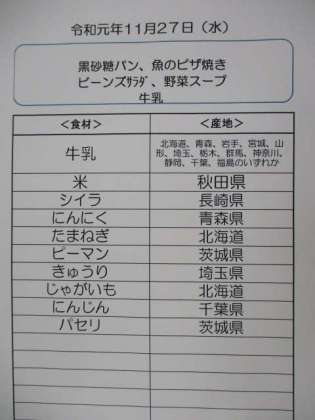 令和元年11月27日（水）
黒砂糖パン、魚のピザ焼き
ビーンズｻﾗﾀﾞ、野菜スープ
牛乳
＜食材＞ ＜産地＞
牛乳 北海道、青森、岩手、宮城、山
形、埼玉、栃木、群馬、神奈川、
静岡、千葉、福島のいずれか
米 秋田県
シイラ 長崎県
にんにく 青森県
たまねぎ 北海道
ピーマン 茨城県
きゅうり 埼玉県
じゃがいも 北海道
にんじん 千葉県
パセリ 茨城県